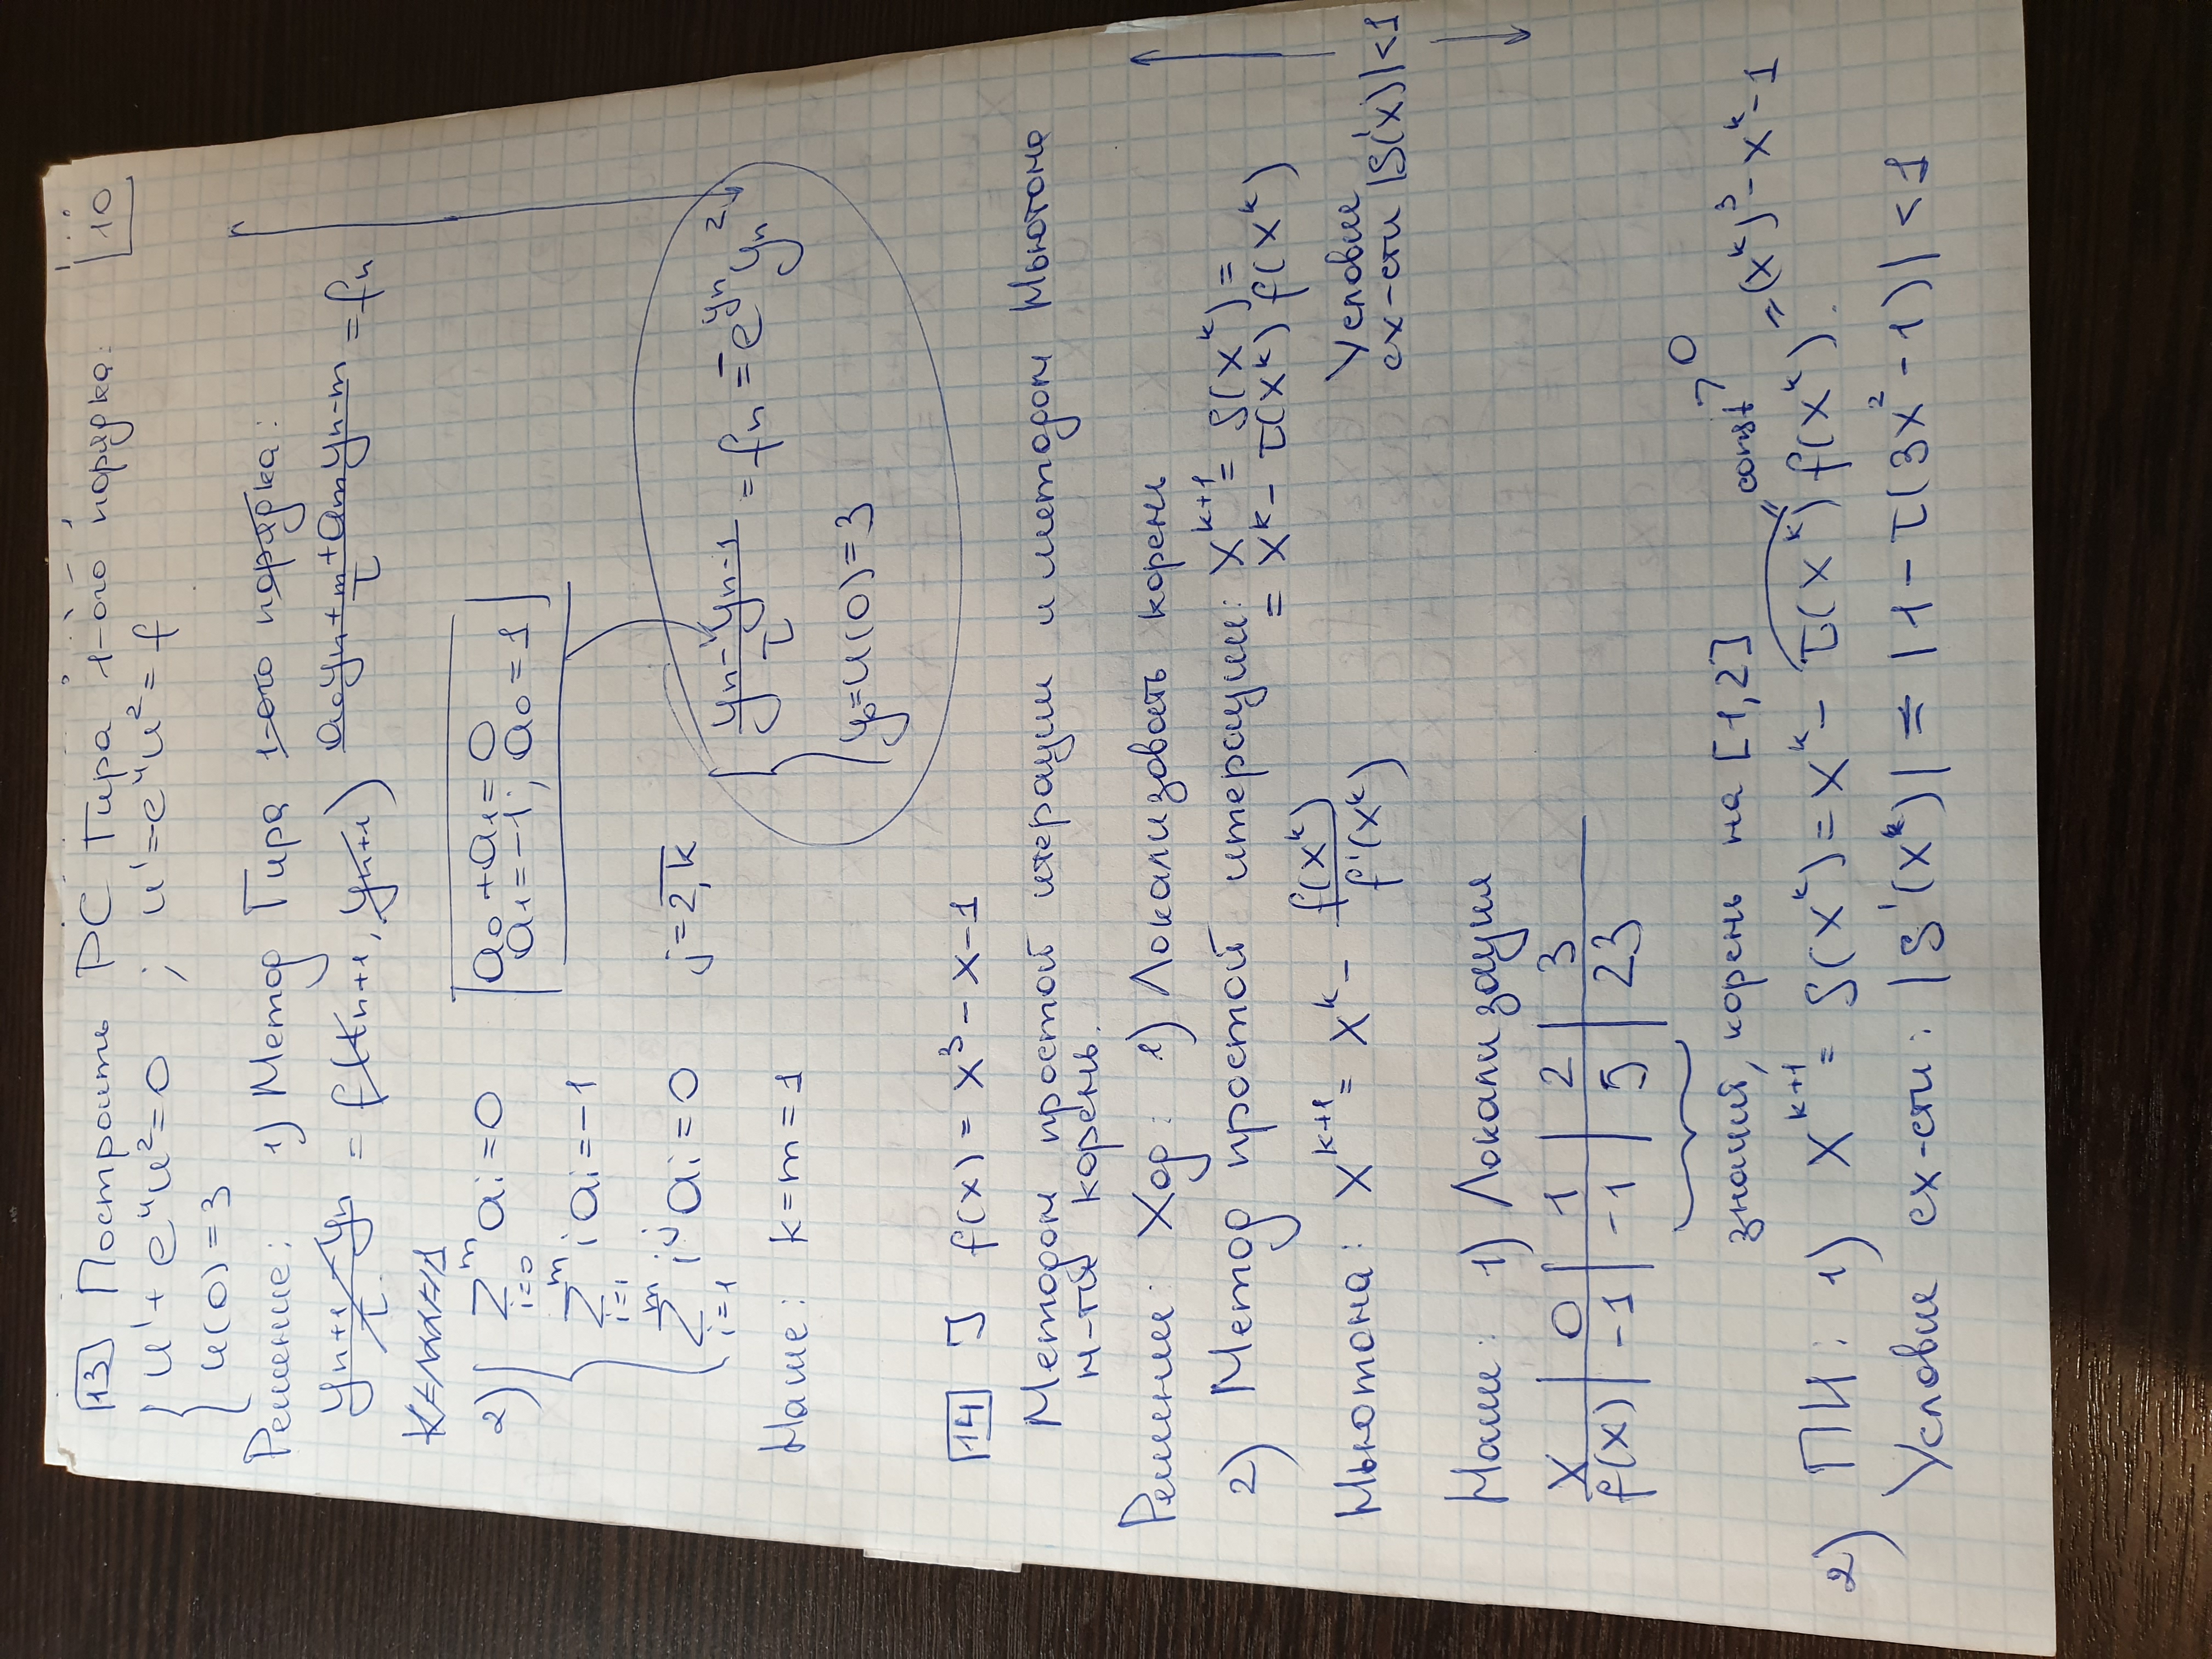 10
13 Построить РС Гира 1-ого порядка:
{ u' + e^u u² = 0 ; u' = -e^u u² = f
u(0) = 3
Решение: 1) Метод Гира 1-ого порядка:
(y_{n+1} - y_n)/τ = f(t_{n+1}, y_{n+1}) (a_0 y_n + ... + a_m y_{n-m})/τ = f_n
2) { Σ_{i=0}^m a_i = 0
Σ_{i=1}^m i a_i = -1
Σ_{i=1}^m i^j a_i = 0 j = 2,k
a_0 + a_1 = 0
a_1 = -1; a_0 = 1
Наше: k = m = 1
{ (y_n - y_{n-1})/τ = f_n = -e^{y_n} y_n²
y_0 = u(0) = 3
14 ] f(x) = x³ - x - 1
Методом простой итерации и методом Ньютона
н-ти корень.
Решении: Ход: 1) Локализовать корень
2) Метод простой итерации: x^{k+1} = S(x^k) =
= x^k - τ(x^k) f(x^k)
Условие
сх-сти |S'(x)| < 1
Ньютона: x^{k+1} = x^k - f(x^k)/f'(x^k)
Наши: 1) Локализация
x | 0 | 1 | 2 | 3
f(x) | -1 | -1 | 5 | 23
знаки, корень на [1,2] const > 0
2) ПИ: 1) x^{k+1} = S(x^k) = x^k - τ(x^k) f(x^k).
= (x^k)³ - x^k - 1
Условие сх-сти: |S'(x^k)| = |1 - τ(3x² - 1)| < 1